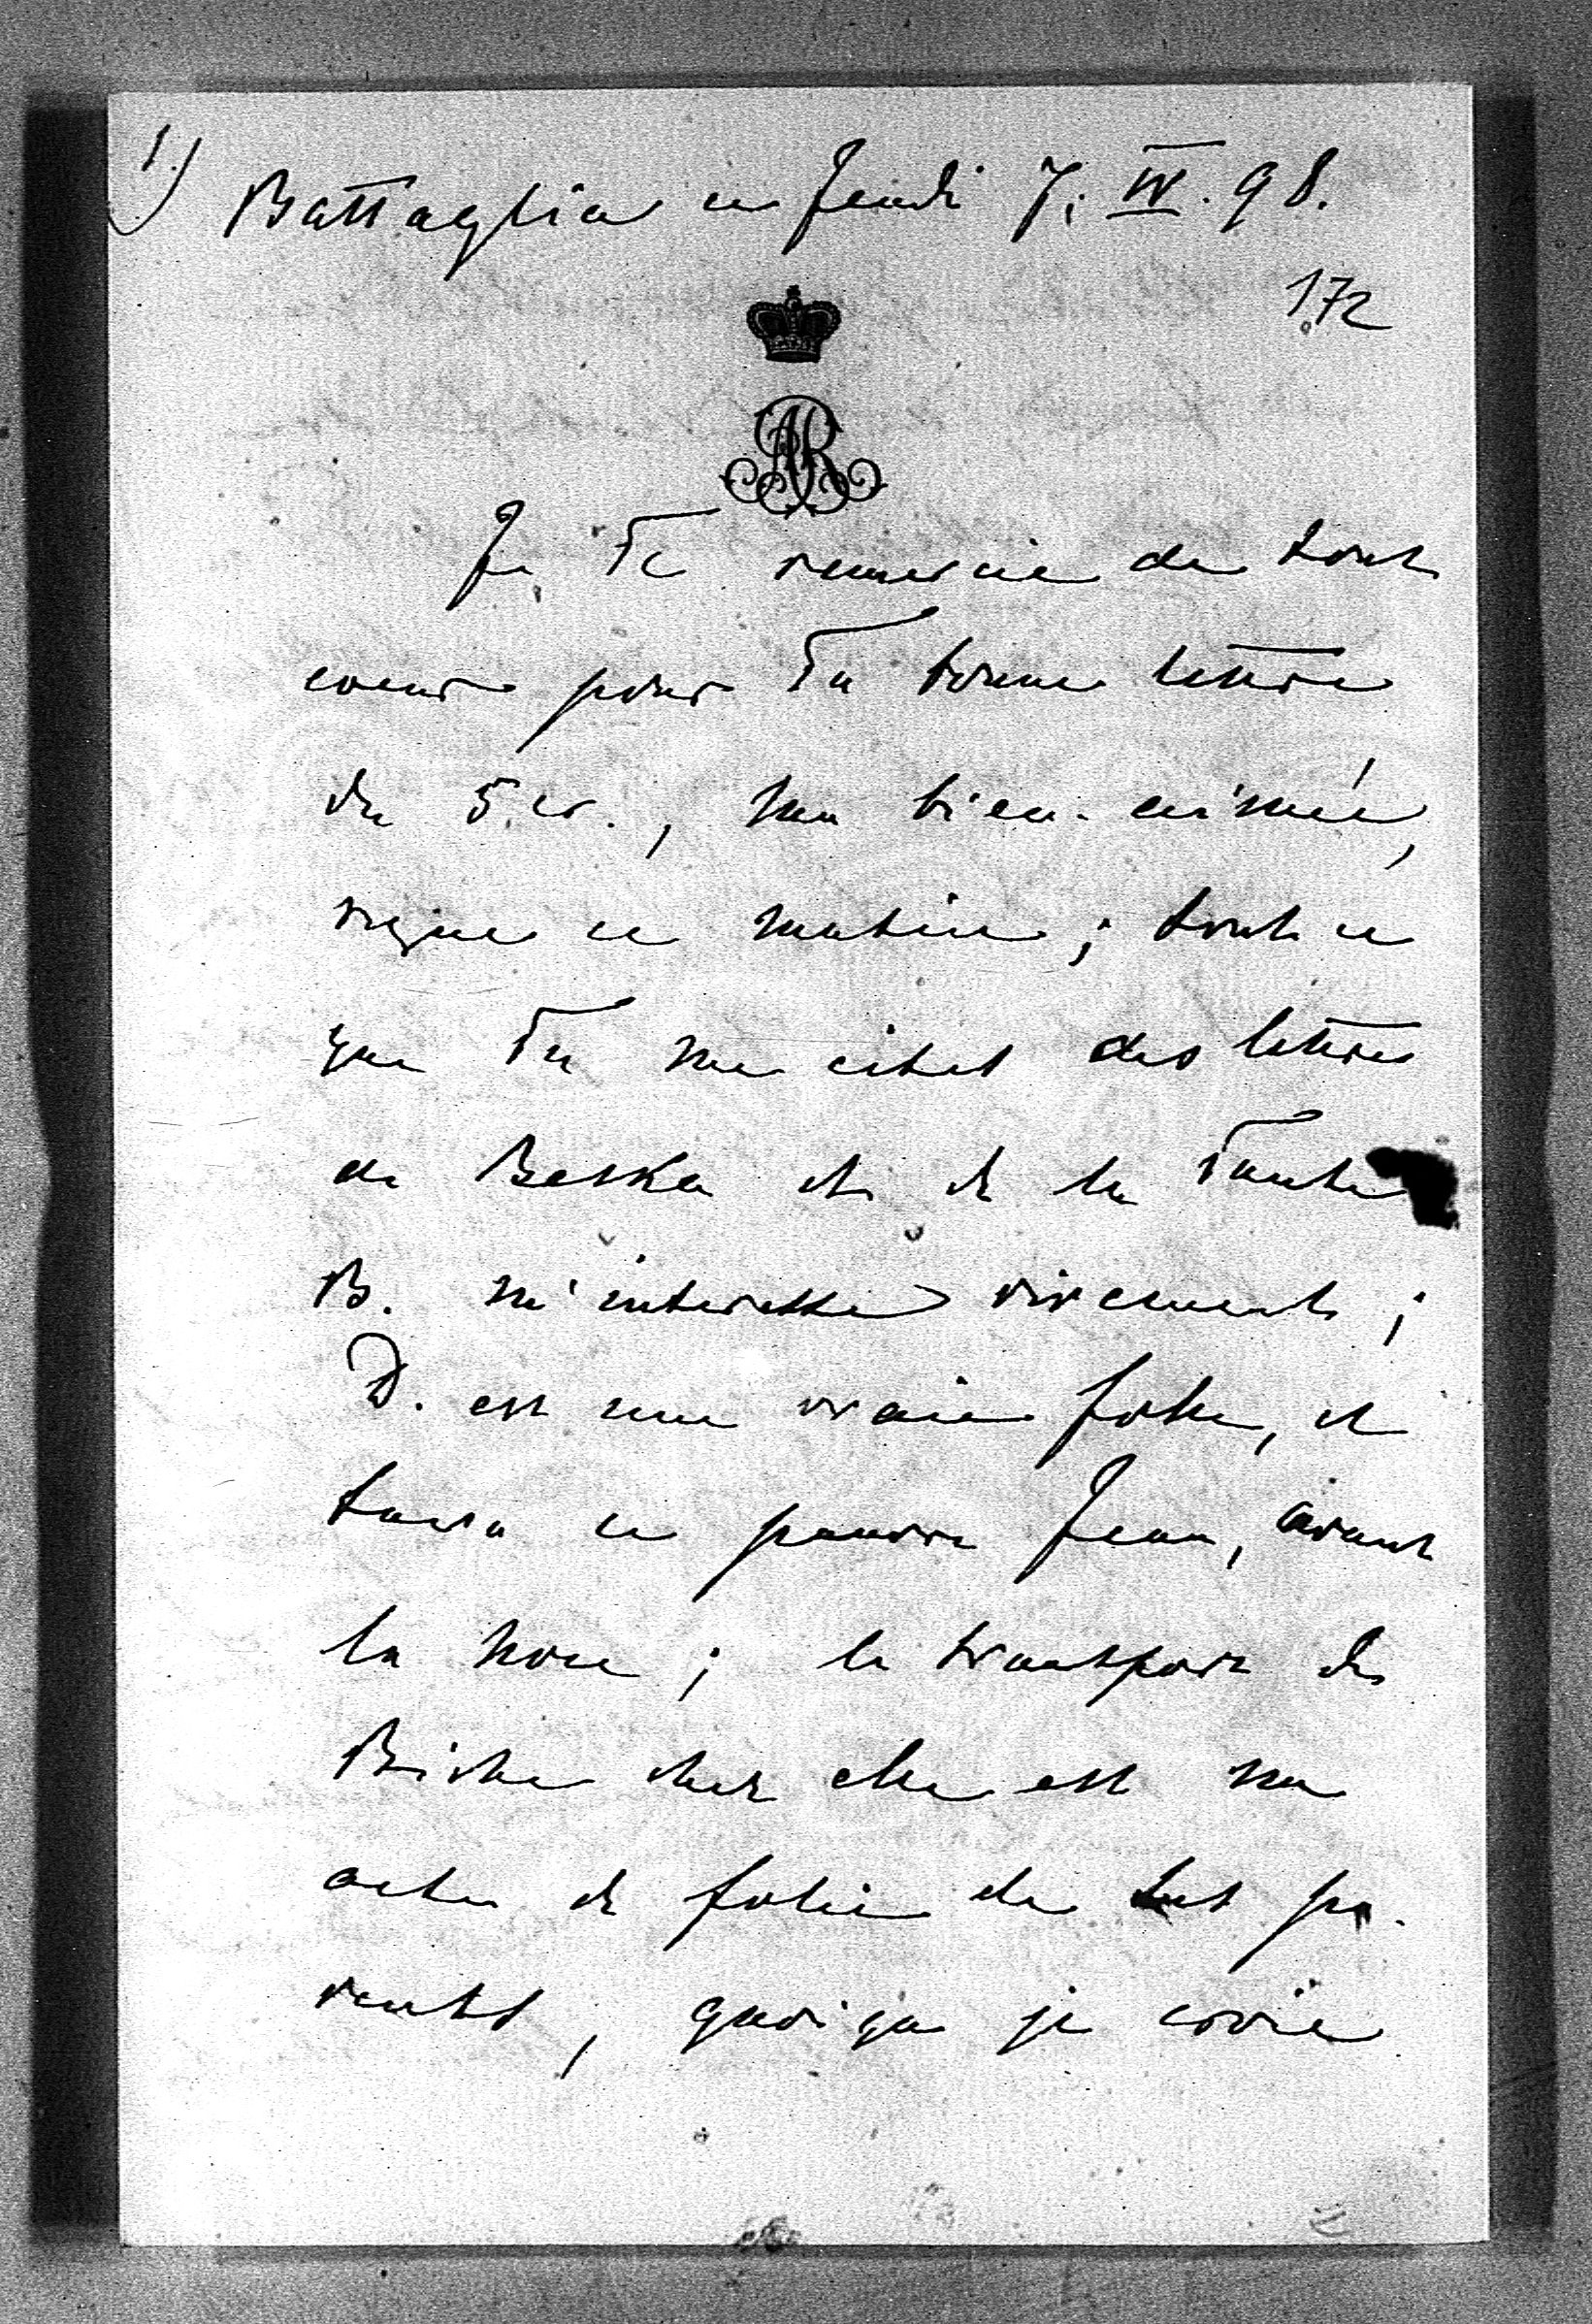 1.) Battaglia ce Jeudi 7. IV. 98.
172
AR
Je Te remercie de tout
coeur pour Ta bonne lettre
du 5 cr., ma bien-aimée,
reçue ce matin; tout ce
que Tu me cites des lettres
de Beska et de la Tante
B. m'interesse vivement;
D. est une vraie folle, et
tuera ce pauvre Jean, avant
la noce; le transport de
Biche chez elle est un
acte de folie de ses pa-
rents, quoique je croie